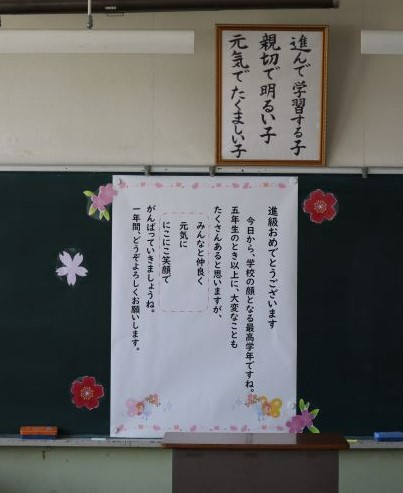 進んで学習する子
親切で明るい子
元気でたくましい子
進級おめでとうございます
今日から、学校の顔となる最高学年ですね。
五年生のとき以上に、大変なことも
たくさんあると思いますが、
みんなと仲良く
元気に
にこにこ笑顔で
がんばっていきましょうね。
一年間、どうぞよろしくお願いします。